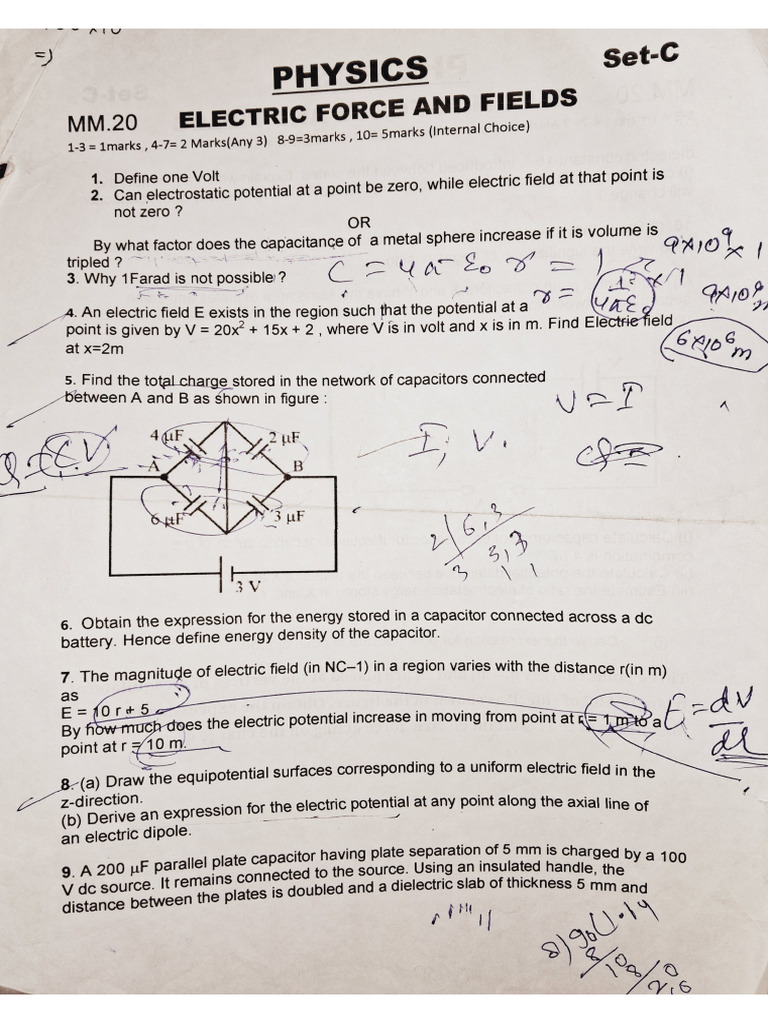 =)
PHYSICS
Set-C
MM.20 ELECTRIC FORCE AND FIELDS
1-3 = 1marks , 4-7= 2 Marks(Any 3) 8-9=3marks , 10= 5marks (Internal Choice)
1. Define one Volt
2. Can electrostatic potential at a point be zero, while electric field at that point is
not zero ?
OR
By what factor does the capacitance of a metal sphere increase if it is volume is
tripled ?
9×10⁹ × 1
3. Why 1Farad is not possible ?
C = 4π ε₀ r = 1
r = 1 / 4πε₀
9×10⁹
6×10⁶ m
4. An electric field E exists in the region such that the potential at a
point is given by V = 20x² + 15x + 2 , where V is in volt and x is in m. Find Electric field
at x=2m
5. Find the total charge stored in the network of capacitors connected
between A and B as shown in figure :
V = I
I, V.
C.V
4 μF
2 μF
A
B
6 μF
3 μF
3 V
2 | 6, 3
3 3, 3
1 1
6. Obtain the expression for the energy stored in a capacitor connected across a dc
battery. Hence define energy density of the capacitor.
7. The magnitude of electric field (in NC–1) in a region varies with the distance r(in m)
as
E = 10 r + 5
By how much does the electric potential increase in moving from point at r = 1 m to a
point at r = 10 m.
E = dV / dr
8. (a) Draw the equipotential surfaces corresponding to a uniform electric field in the
z-direction.
(b) Derive an expression for the electric potential at any point along the axial line of
an electric dipole.
9. A 200 μF parallel plate capacitor having plate separation of 5 mm is charged by a 100
V dc source. It remains connected to the source. Using an insulated handle, the
distance between the plates is doubled and a dielectric slab of thickness 5 mm and